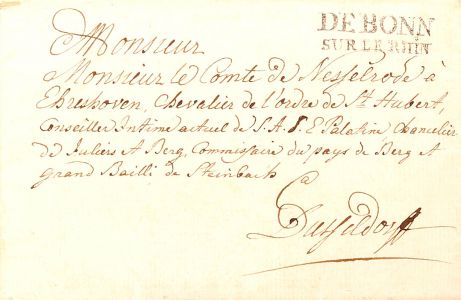 DE BONN
SUR LE RHIN
Monsieur
Monsieur le Comte de Nesselrode à
Ehreshoven, Chevalier de l'ordre de St. Hubert,
Conseiller Intime actuel de S. A. S. E. Palatine Chancelier
de Juliers et Berg, Commissaire du pays de Berg et
grand Bailli de Steinbach
a
Dusseldorff